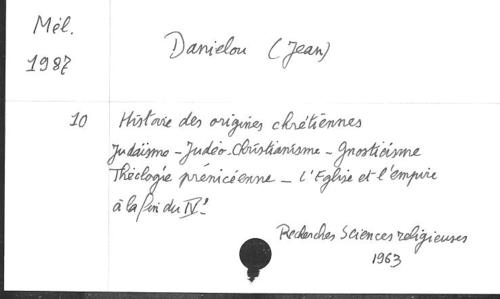 Mél.
1987
Danielou (Jean)
10 Histoire des origines chrétiennes
Judaïsme - Judéo-Christianisme - Gnosticisme
Théologie prénicéenne - L'Eglise et l'empire
à la fin du IVe
Recherches Sciences religieuses
1963